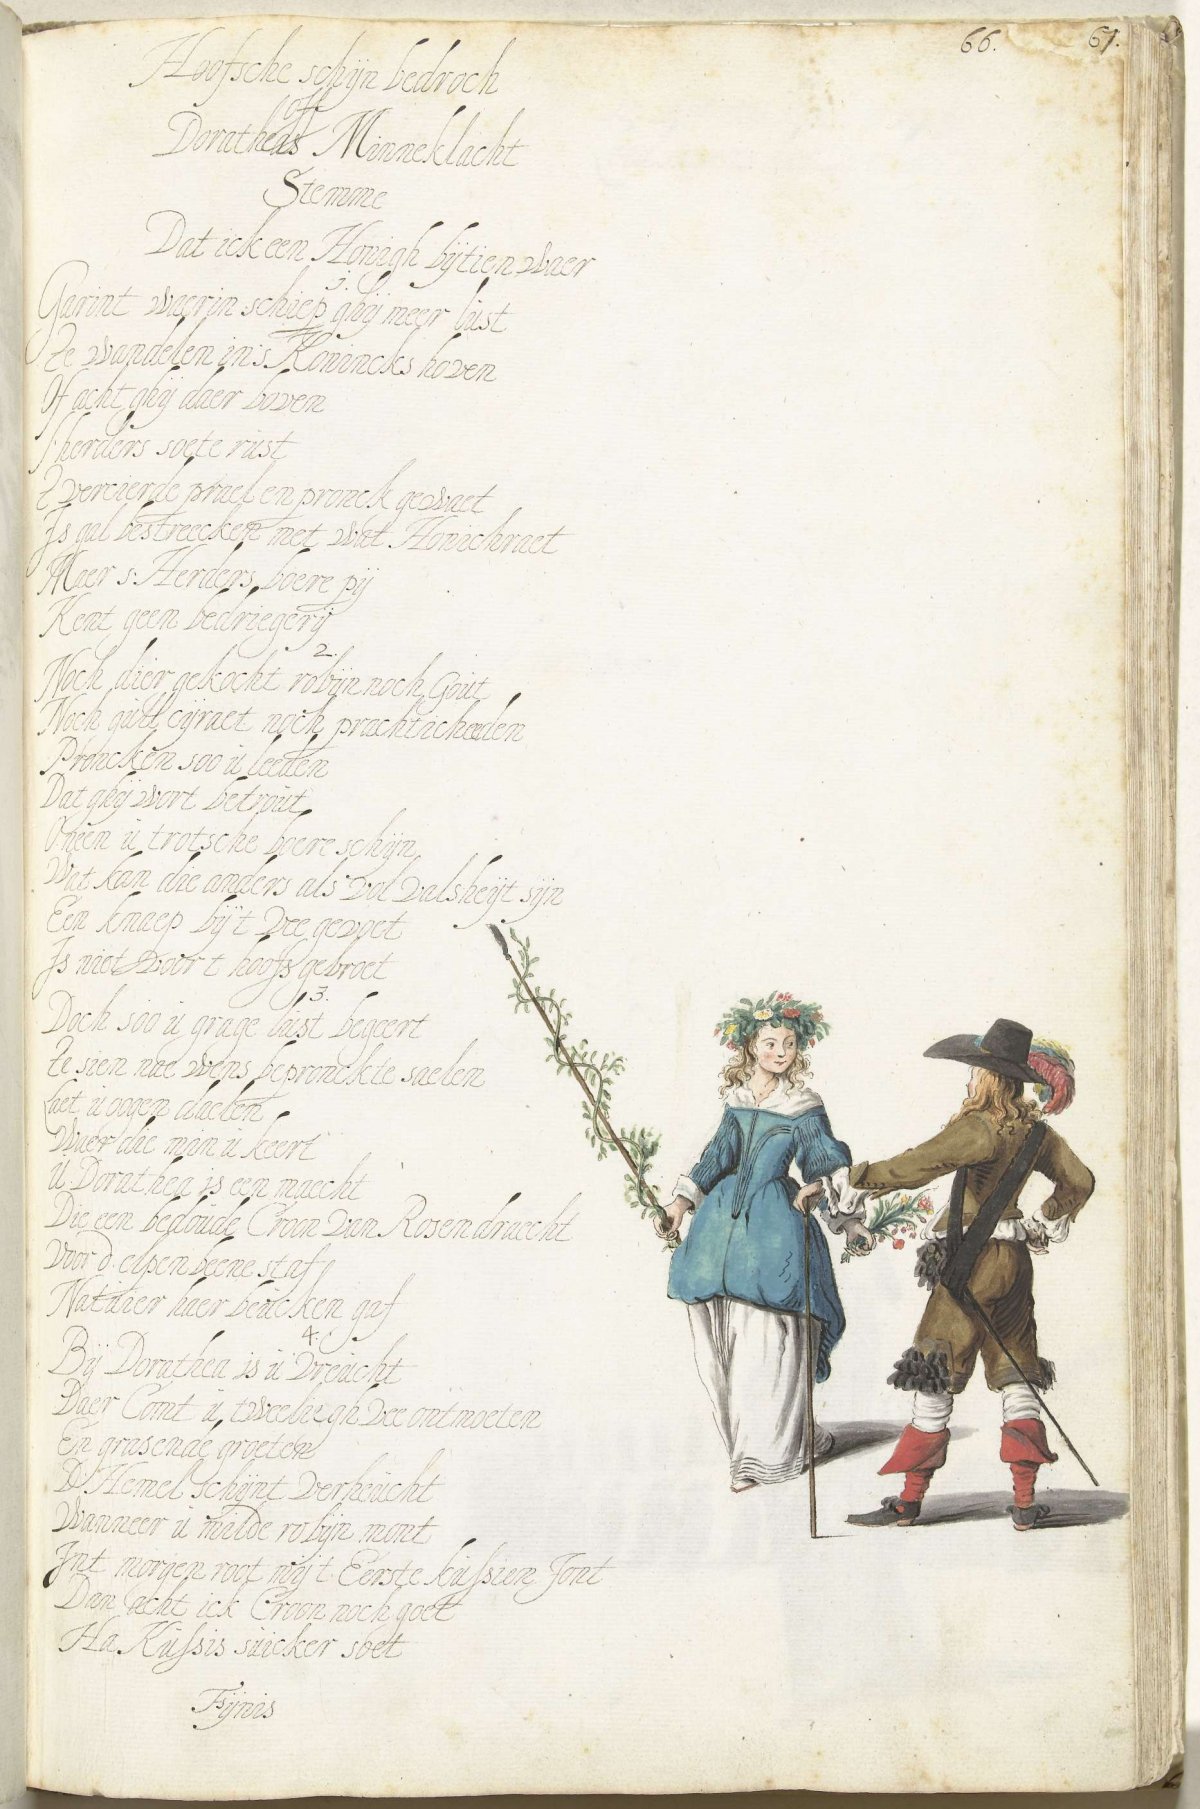 66. 61.
Hoofsche schijn bedroch
off
Doratheas Minneklacht
Stemme
Dat ick een Honigh bijtien waer
1.
Garint waerin schiep ghij meer lust
Te wandelen in's Konincks hoven
Of acht ghij daer boven
s'herders soete rust
t vercierde prael en pronck gewaet
Is gal bestreecken met wat Honichraet
Maer s: Herders boere pij
Kent geen bedriegerij
2.
Noch dier gekocht robijn noch Gout
Noch gult cijraet noch prachticheeden
Proncken soo u leeden
Dat ghij wort betrout
O neen u trotsche boere schijn
Wat kan die anders als vol valsheijt sijn
Een knaep bij't vee gevoet
Is niet voor t hoofs gebroet
3.
Doch soo u grage lust begeert
Te sien nae wens bepronckte saelen
Laet u oogen daelen
Waer die min u keert
U Dorathea is een maecht
Die een bedoude Croon van Rosen draecht
Voor d elpenbeene staf
Natuier haer beucken gaf
4.
Bij Dorathea is u vreucht
Daer Comt u tweeliegh vee ontmoeten
En grasende groeten
D Hemel schijnt verheucht
Wanneer u milde robijn mont
Int morgen root mij t Eerste kussien Jont
Dan acht ick Croon noch goet
Ha Kussis suicker soet
Fijnis